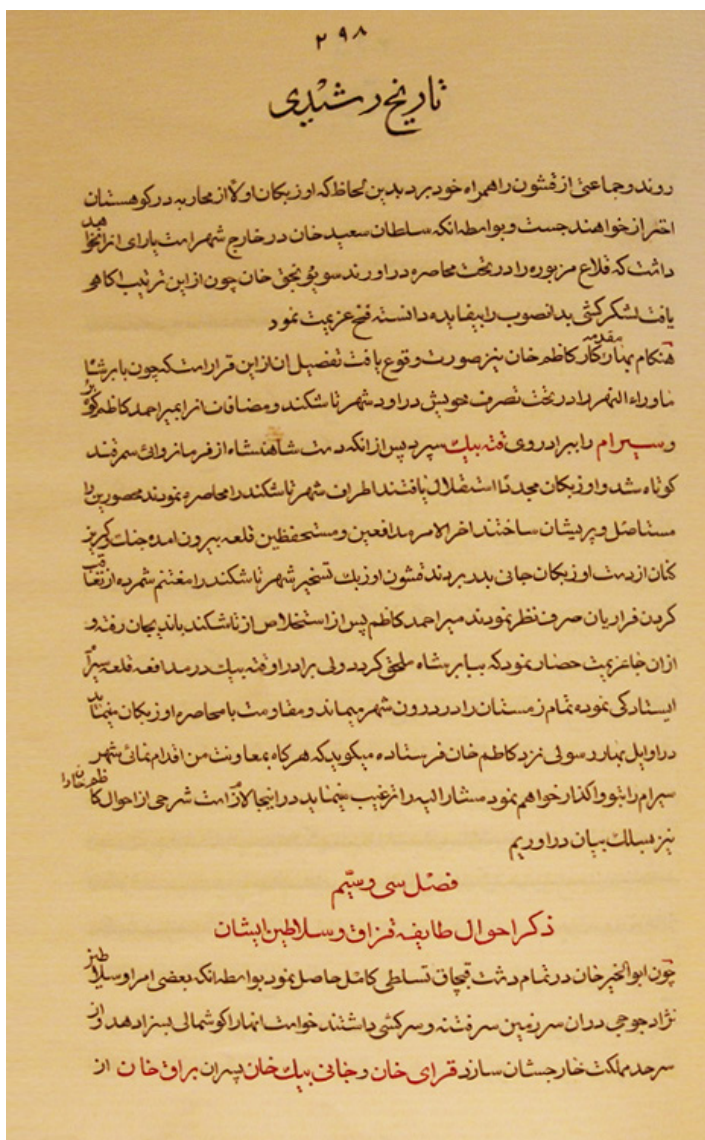 ۲۹۸
تاریخ رشیدی
روند و جماعتی از قشون را همراه خود برد بدین لحاظ که اوزبکان اولا از محاربه در کوهستان
احتراز خواهند جست و بواسطه انکه سلطان سعید خان در خارج شهر است یارای انرا نخواهد
داشت که قلاع مزبوره را در تحت محاصره در اورند سویونجق خان چون از این ترتیب اکاهی
یافت لشکر کشی بدانصوب را بیفایده دانسته فسخ عزیمت نمود
هنکام بهار مقدمه کار کاظم خان نیز صورت وقوع یافت تفصیل ان از این قرار است که چون بابر شاه
ماوراء النهر را در تحت تصرف خویش در اورد شهر تاشکند و مضافات انرا بمیر احمد کاظم
و سیرام را ببرادر وی قته بیك سپرد پس از انکه دست شاهنشاه از فرمانروائی سمرقند
کوتاه شد و اوزبکان مجددا استقلال یافتند اطراف شهر تاشکند را محاصره نمودند محصورین را
مستاصل و پریشان ساختند اخر الامر مدافعین و مستحفظین قلعه بیرون امده جنك و کریز
کنان از دست اوزبکان جانی بدر بردند قشون اوزبك تسخیر شهر تاشکند را مغتنم شمرده از تعاقب
کردن فراریان صرف نظر نمودند میر احمد کاظم پس از استخلاص از تاشکند باندیجان رفته و
از ان جا عزیمت حصار نمود که ببابر شاه ملحق کردد ولی برادر او قته بیك در مدافعه قلعه سیرام
ایستادکی نموده تمام زمستان را در درون شهر میماند و مقاومت با محاصره اوزبکان مینماید
در اوایل بهار رسولی نزد کاظم خان فرستاده میکوید که هر کاه بمعاونت من اقدام نمائی شهر
سیرام را بتو واکذار خواهم نمود مشار الیه را ترغیب مینماید در اینجا لازم است شرحی از احوال کاظم خان را
نیز بسلك بیان در اوریم
فصل سی و سیّم
ذکر احوال طایفه قزاق و سلاطین ایشان
چون ابوالخیر خان در تمام دشت قبچاق تسلطی کامل حاصل نمود بواسطه انکه بعضی امرا و سلاطین
نژاد جوجی در ان سرزمین سر فتنه و سرکشی داشتند خواست انها را کوشمالی بسزا دهد و از
سرحد مملکت خارجشان سازد قرای خان و جانی بیك خان پسران براق خان از